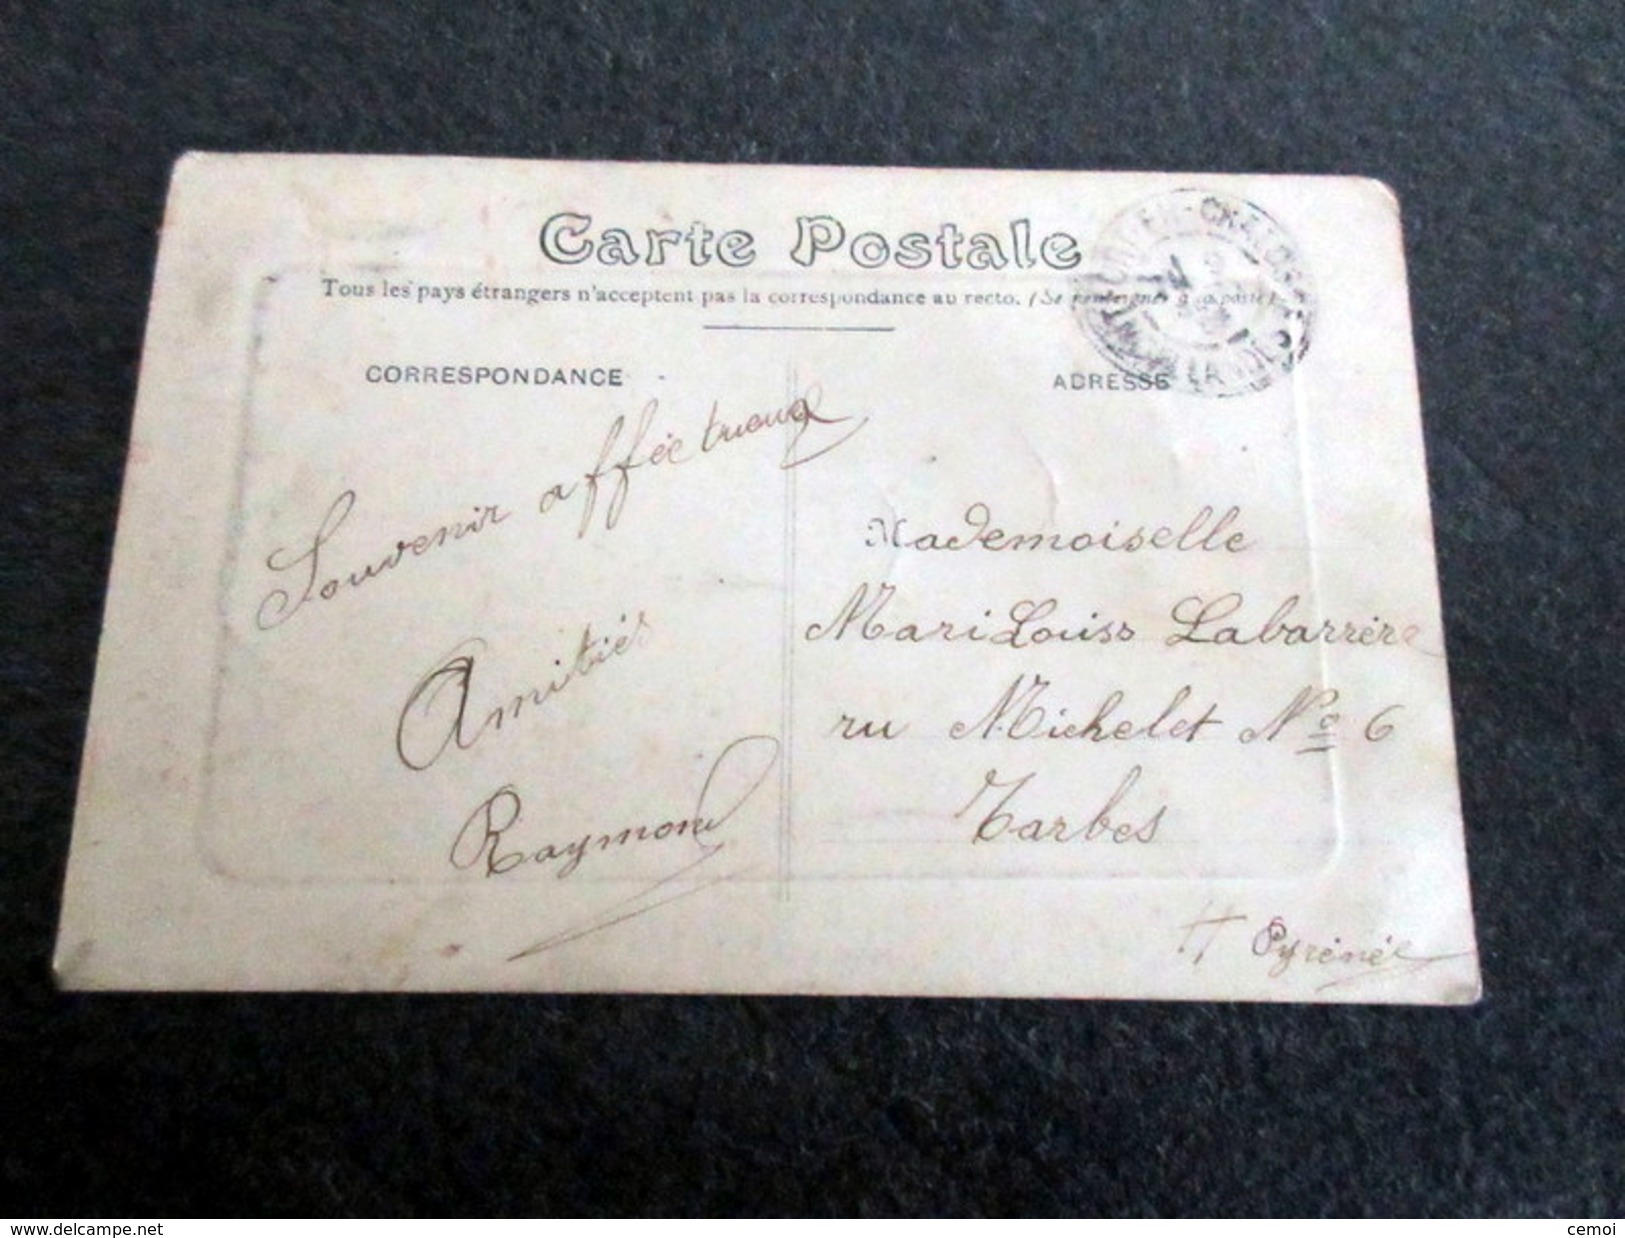 Carte Postale
Tous les pays étrangers n'acceptent pas la correspondance au recto. (Se renseigner à la poste)
CORRESPONDANCE
ADRESSE
Souvenir affectueux
Amitiés
Raymond
Mademoiselle
Mari Louiss Labarrère
ru Michelet Nº 6
Tarbes
H Pyrénée
www.delcampe.net
cemoi